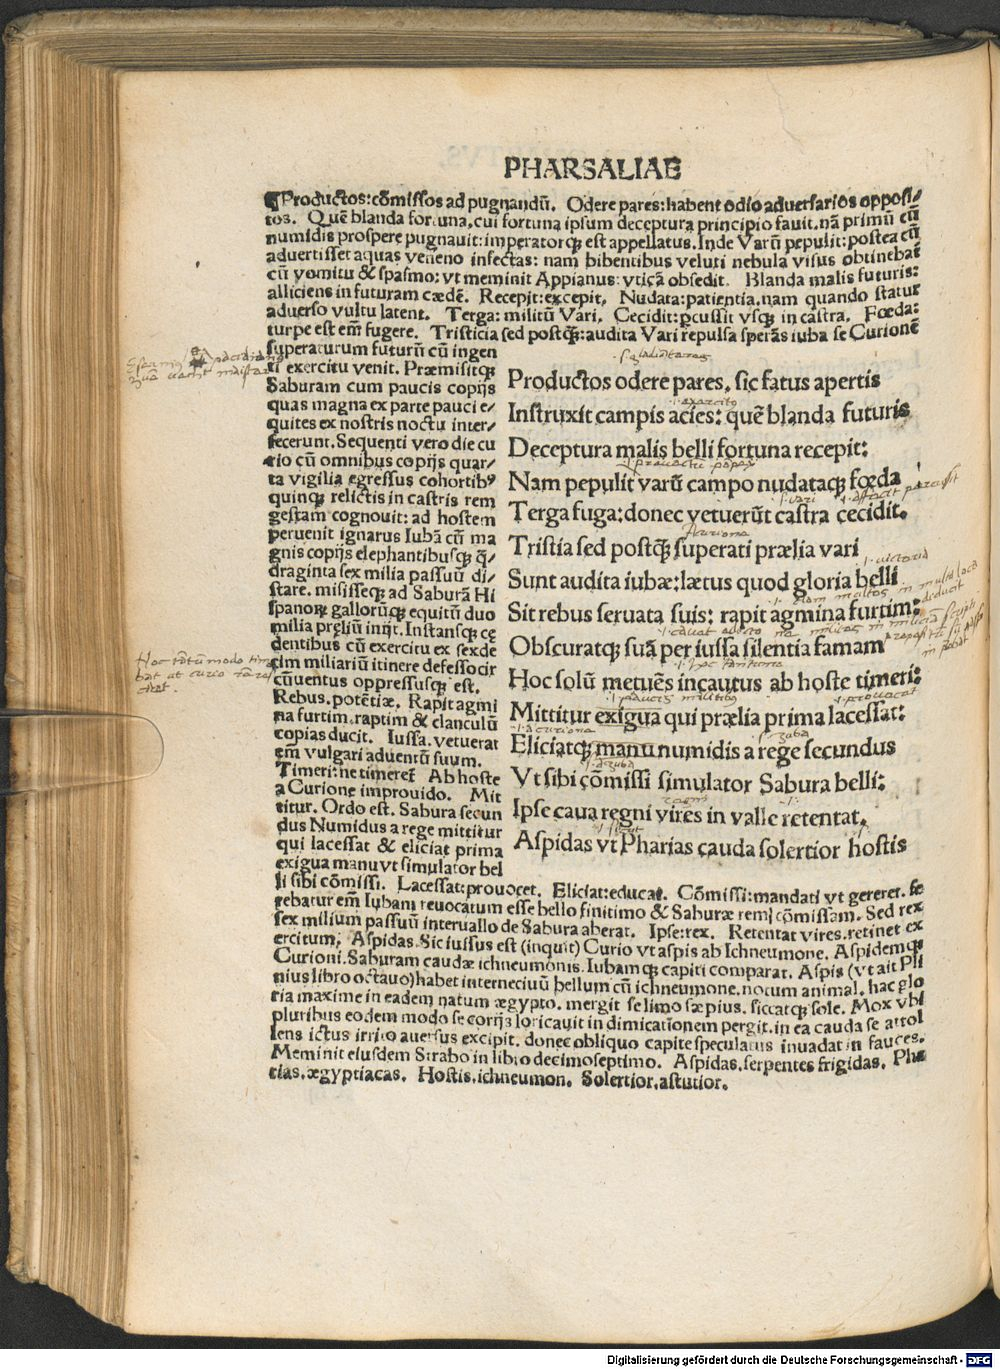 PHARSALIAE
¶Productos:cōmissos ad pugnandū. Odere pares:habent odio adversarios opposi-
tos. Quē blanda fortuna,cui fortuna ipsum deceptura principio fauit.nā primū cū
numidis prospere pugnauit:imperatorqꝫ est appellatus.Inde Varū pepulit:postea cū
advertisset aquas veneno infectas: nam bibentibus veluti nebula visus obtinebat
cū vomitu & spasmo: vt meminit Appianus: vticā obsedit. Blanda malis futuris:
alliciens in futuram cædē. Recepit:excepit. Nudata:patientia.nam quando statur
adverso vultu latent. Terga: militū Vari. Cecidit:ꝑcussit vsqꝫ in castra. Fœda:
turpe est em̄ fugere. Tristicia sed postqꝫ:audita Vari repulsa sperās iuba se Curionē
superaturum futurū cū ingen
ti exercitu venit. Præmisitqꝫ
Saburam cum paucis copijs
quas magna ex parte pauci e-
quites ex nostris noctu inter-
fecerunt.Sequenti vero die cu
rio cū omnibus copijs quar-
ta vigilia egressus cohortibꝰ
quinqꝫ relictis in castris rem
gestam cognouit: ad hostem
peruenit ignarus Iubā cū ma
gnis copijs elephantibusqꝫ q̄-
draginta sex milia passuū di-
stare. misisseqꝫ ad Saburā Hi
spanorꝫ gallorūqꝫ equitū duo
milia preliū inijt.Instansqꝫ ce
dentibus cū exercitu ex sexde
cim miliariū itinere defessocir
cūuentus oppressusqꝫ est.
Rebus.potētiæ. Rapit agmi
na furtim.raptim & clanculū
copias ducit. Iussa.vetuerat
em̄ vulgari aduentū suum.
Timeri:ne timeret Ab hoste
a Curione improuido. Mit
titur. Ordo est. Sabura secun
dus Numidus a rege mittitur
qui lacessat & eliciat prima
exigua manu vt simulator bel
li sibi cōmissi. Lacessat:prouocet. Eliciat:educat. Cōmissi:mandati vt gereret. fe
rebatur em̄ Iubam reuocatum esse bello finitimo & Saburæ rem cōmissam. Sed rex
sex milium passuū interuallo de Sabura aberat. Ipse:rex. Retentat vires.retinet ex
ercitum. Aspidas.Sic iussus est (inquit) Curio vt aspis ab Ichneumone. Aspidemqꝫ
Curioni.Saburam caudæ ichneumonis.Iubamqꝫ capiti comparat. Aspis (vt ait Pli
nius libro octauo)habet interneciuū bellum cū ichneumone.notum animal. hac glo
ria maxime in eadem natum ægypto. mergit se limo sæpius. siccatqꝫ sole. Mox vbi
pluribus eodem modo se corijs loricauit in dimicationem pergit.in ea cauda se attol
lens ictus irrito auersus excipit. donec obliquo capite speculatus inuadat in fauces.
Meminit eiusdem Strabo in libro decimoseptimo. Aspidas.serpentes frigidas. Pha
rias.ægyptiacas. Hostis.ichneumon. Solertior.astutior.
Productos odere pares. sic fatus apertis
Instruxit campis acies: quē blanda futuris
Deceptura malis belli fortuna recepit:
Nam pepulit varū campo nudataqꝫ fœda
Terga fuga:donec vetuerūt castra cecidit.
Tristia sed postqꝫ superati prælia vari
Sunt audita iubæ:lætus quod gloria belli
Sit rebus seruata suis: rapit agmina furtim:
Obscuratqꝫ suā per iussa silentia famam
Hoc solū metuēs incautus ab hoste timeri:
Mittitur exigua qui prælia prima lacessat:
Eliciatqꝫ manu numidis a rege secundus
Vt sibi cōmissi simulator Sabura belli:
Ipse caua regni vires in valle retentat.
Aspidas vt Pharias cauda solertior hostis
Digitalisierung gefördert durch die Deutsche Forschungsgemeinschaft - DFG